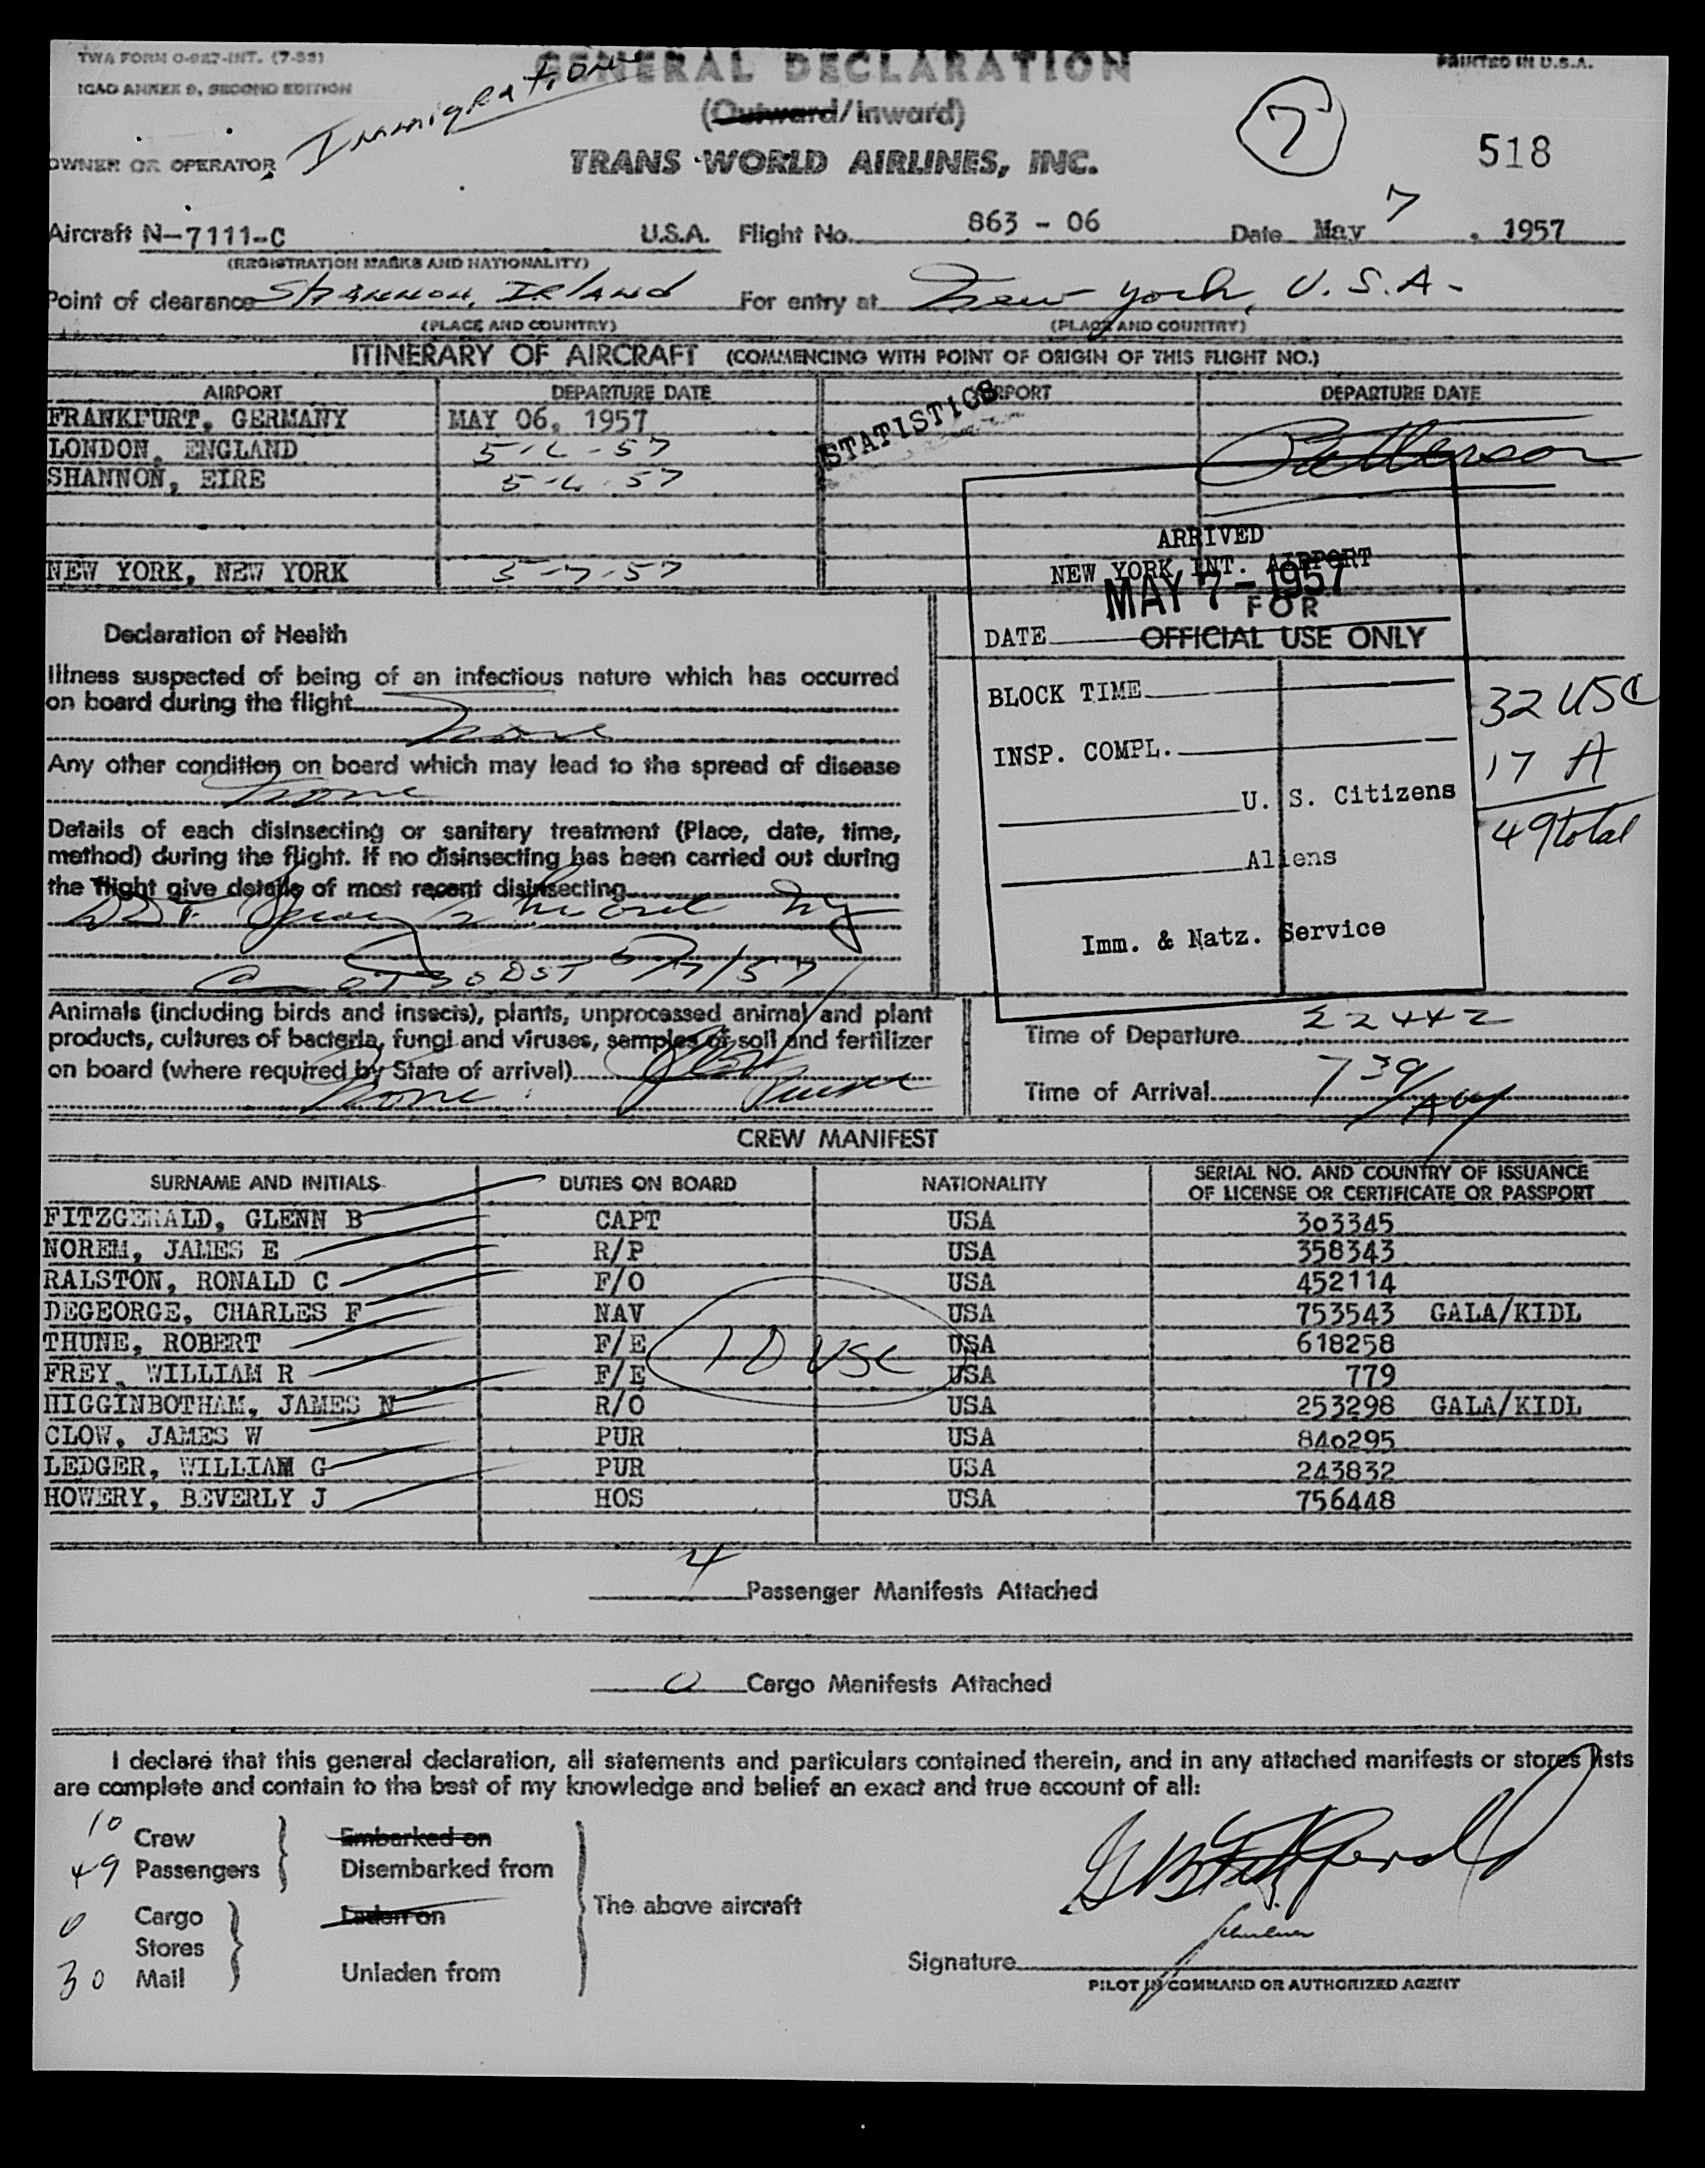 TWA FORM O-027-INT. (7-55)
GENERAL DECLARATION
PRINTED IN U.S.A.
ICAO ANNEX 9, SECOND EDITION
Immigration
(Outward/Inward)
7
518
OWNER OR OPERATOR
TRANS WORLD AIRLINES, INC.
Aircraft N-7111-C U.S.A. Flight No. 863 - 06 Date May 7, 1957
(REGISTRATION MARKS AND NATIONALITY)
Point of clearance Shannon, Ireland For entry at New York, U.S.A.
(PLACE AND COUNTRY) (PLACE AND COUNTRY)
ITINERARY OF AIRCRAFT (COMMENCING WITH POINT OF ORIGIN OF THIS FLIGHT NO.)
AIRPORT DEPARTURE DATE AIRPORT DEPARTURE DATE
FRANKFURT, GERMANY MAY 06, 1957
STATISTICS
LONDON, ENGLAND 5-6-57
Patterson
SHANNON, EIRE 5-6-57
NEW YORK, NEW YORK 5-7-57
ARRIVED
NEW YORK INT. AIRPORT
MAY 7 - 1957
FOR
OFFICIAL USE ONLY
DATE
BLOCK TIME
INSP. COMPL.
U. S. Citizens
Aliens
Imm. & Natz. Service
32 USC
17 A
49 total
Declaration of Health
Illness suspected of being of an infectious nature which has occurred
on board during the flight
None
Any other condition on board which may lead to the spread of disease
None
Details of each disinsecting or sanitary treatment (Place, date, time,
method) during the flight. If no disinsecting has been carried out during
the flight give details of most recent disinsecting
DST 5/7/57
Animals (including birds and insects), plants, unprocessed animal and plant
products, cultures of bacteria, fungi and viruses, samples of soil and fertilizer
on board (where required by State of arrival)
None
Time of Departure 2244Z
Time of Arrival 739
CREW MANIFEST
SURNAME AND INITIALS DUTIES ON BOARD NATIONALITY SERIAL NO. AND COUNTRY OF ISSUANCE
OF LICENSE OR CERTIFICATE OR PASSPORT
FITZGERALD, GLENN B CAPT USA 303345
NOREM, JAMES E R/P USA 358343
RALSTON, RONALD C F/O USA 452114
DEGEORGE, CHARLES F NAV USA 753543 GALA/KIDL
THUNE, ROBERT F/E USA 618258
10 USC
FREY, WILLIAM R F/E USA 779
HIGGINBOTHAM, JAMES N R/O USA 253298 GALA/KIDL
CLOW, JAMES W PUR USA 840295
LEDGER, WILLIAM G PUR USA 243832
HOWERY, BEVERLY J HOS USA 756448
4 Passenger Manifests Attached
0 Cargo Manifests Attached
I declare that this general declaration, all statements and particulars contained therein, and in any attached manifests or stores lists
are complete and contain to the best of my knowledge and belief an exact and true account of all:
10 Crew Embarked on
49 Passengers Disembarked from
The above aircraft
0 Cargo Laden on
Stores
30 Mail Unladen from
G B Fitzgerald
Signature
PILOT IN COMMAND OR AUTHORIZED AGENT